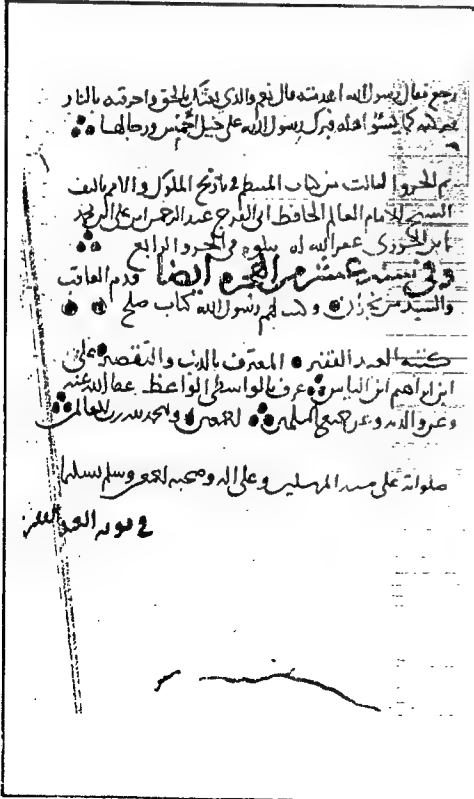 رجع فقال رسول الله اهدمته قال نعم والذي بعثك بالحق واحرقته بالنار
فبرك رسول الله على خيل احمس ورجالها
تم الجزو الثالث من كتاب المنتظم في تاريخ الملوك والامم تاليف
الشيخ الامام العالم الحافظ ابي الفرج عبد الرحمن ابن علي
ابن الجوزي غفر الله له يتلوه في الجزو الرابع
وفي سنة عشر من الهجرة ايضا قدم العاقب
والسيد من نجران وكتب لهم رسول الله كتاب صلح
كتبه العبد الفقير المعترف بالذنب والتقصير علي
ابن ابراهيم ابن الياس عرف بالواسطي الواعظ عفا الله عنه
وعن والديه وعن جميع المسلمين والحمد لله رب العالمين
صلواته على سيد المرسلين وعلى اله وصحبه وسلم تسليما
في نوبة العبد الفقير